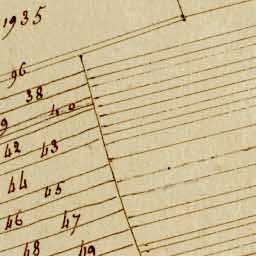 1935
96
38
9 40
42 43
44 45
46 47
48 49